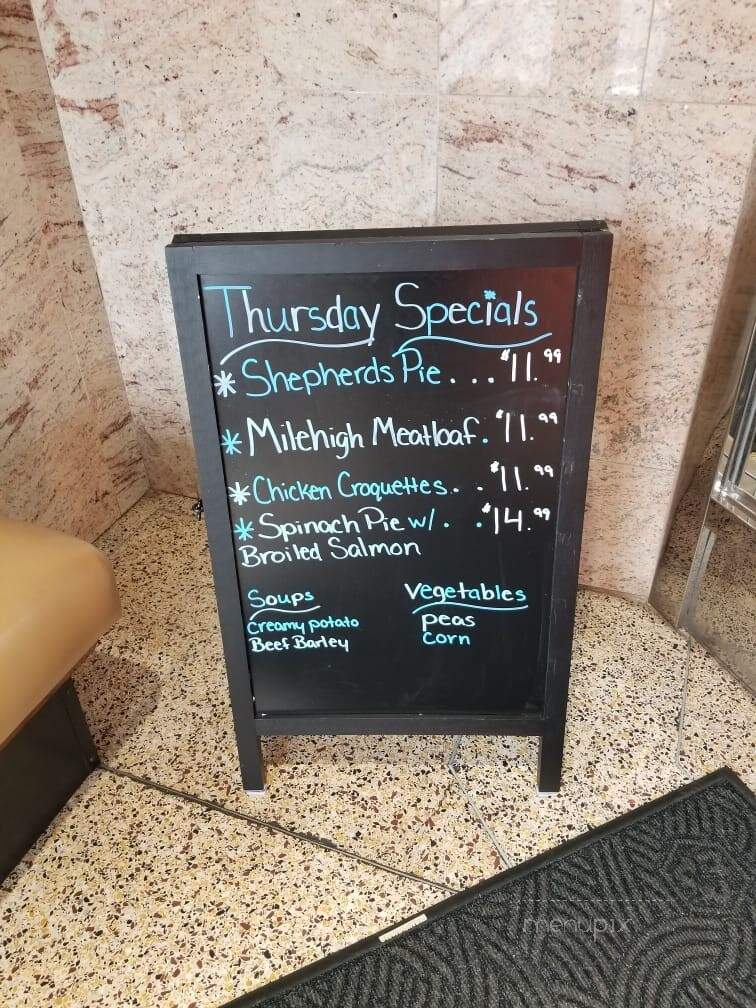 Thursday Specials
* Shepherds Pie... $11.99
* Milehigh Meatloaf. $11.99
* Chicken Croquettes.. $11.99
* Spinach Pie w/. . $14.99
Broiled Salmon
Soups
Creamy potato
Beef Barley
Vegetables
peas
corn
menupix